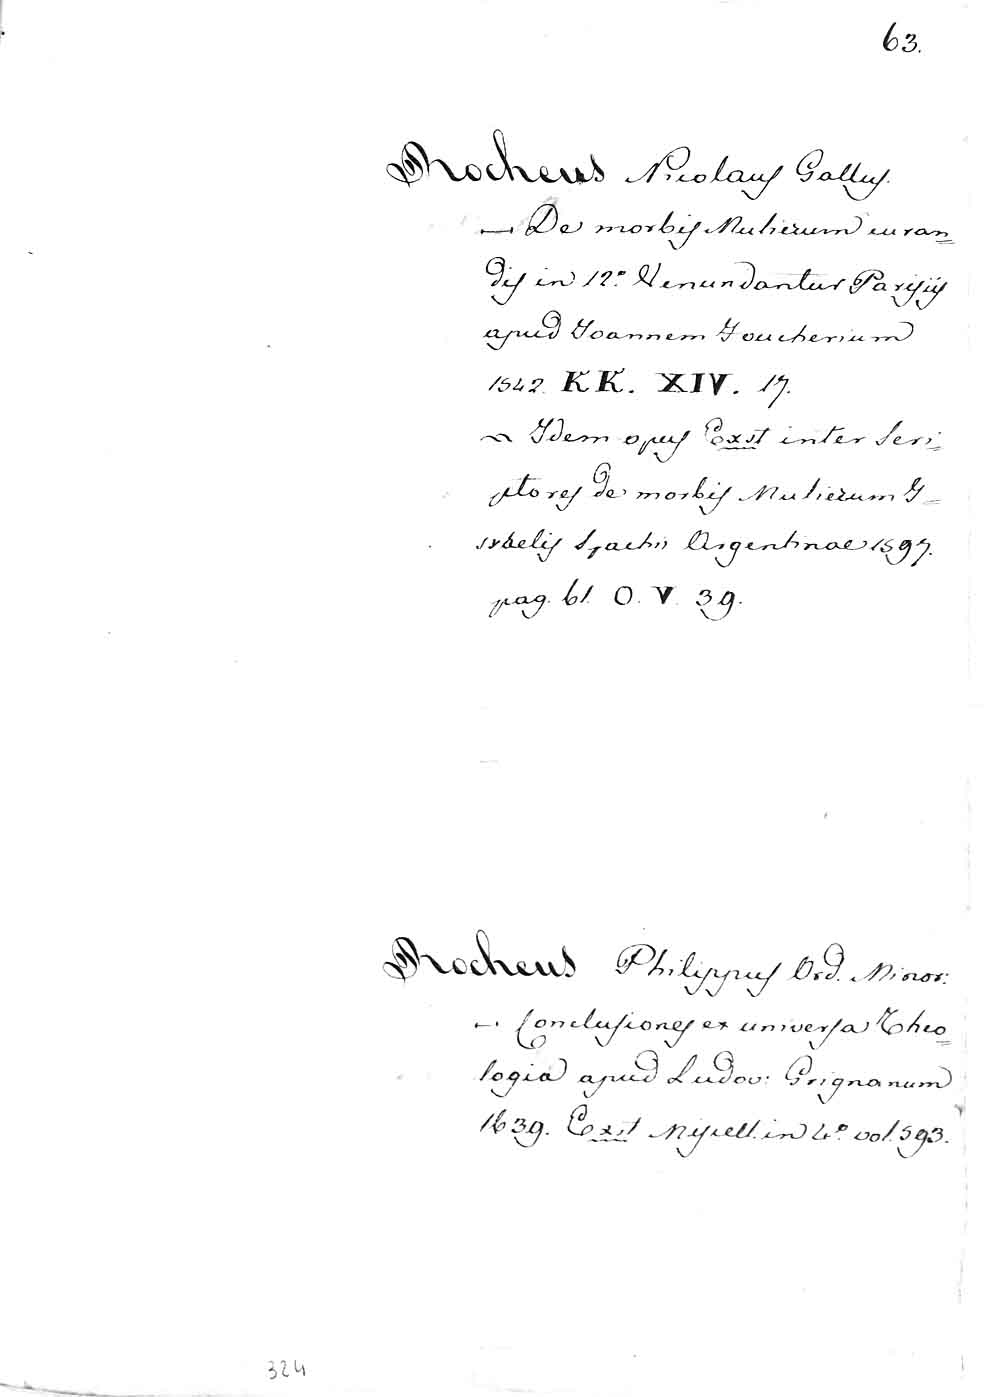 63.
Rocheus Nicolaus Gallus.
— De morbis Mulierum curan=
dis in 12.º Venundantur Parisiis
apud Joannem Foucherium
1542. KK. XIV. 17.
~ Idem opus Exst inter Scri=
ptores de morbis Mulierum I=
sraelis Spachii Argentinae 1597.
pag. 61. O. V. 39.
Rocheus Philippus Ord. Minor:
— Conclusiones ex universa Theo=
logia apud Ludov: Grignanum
1639. Exst Miscell. in 4.º vol. 593.
324